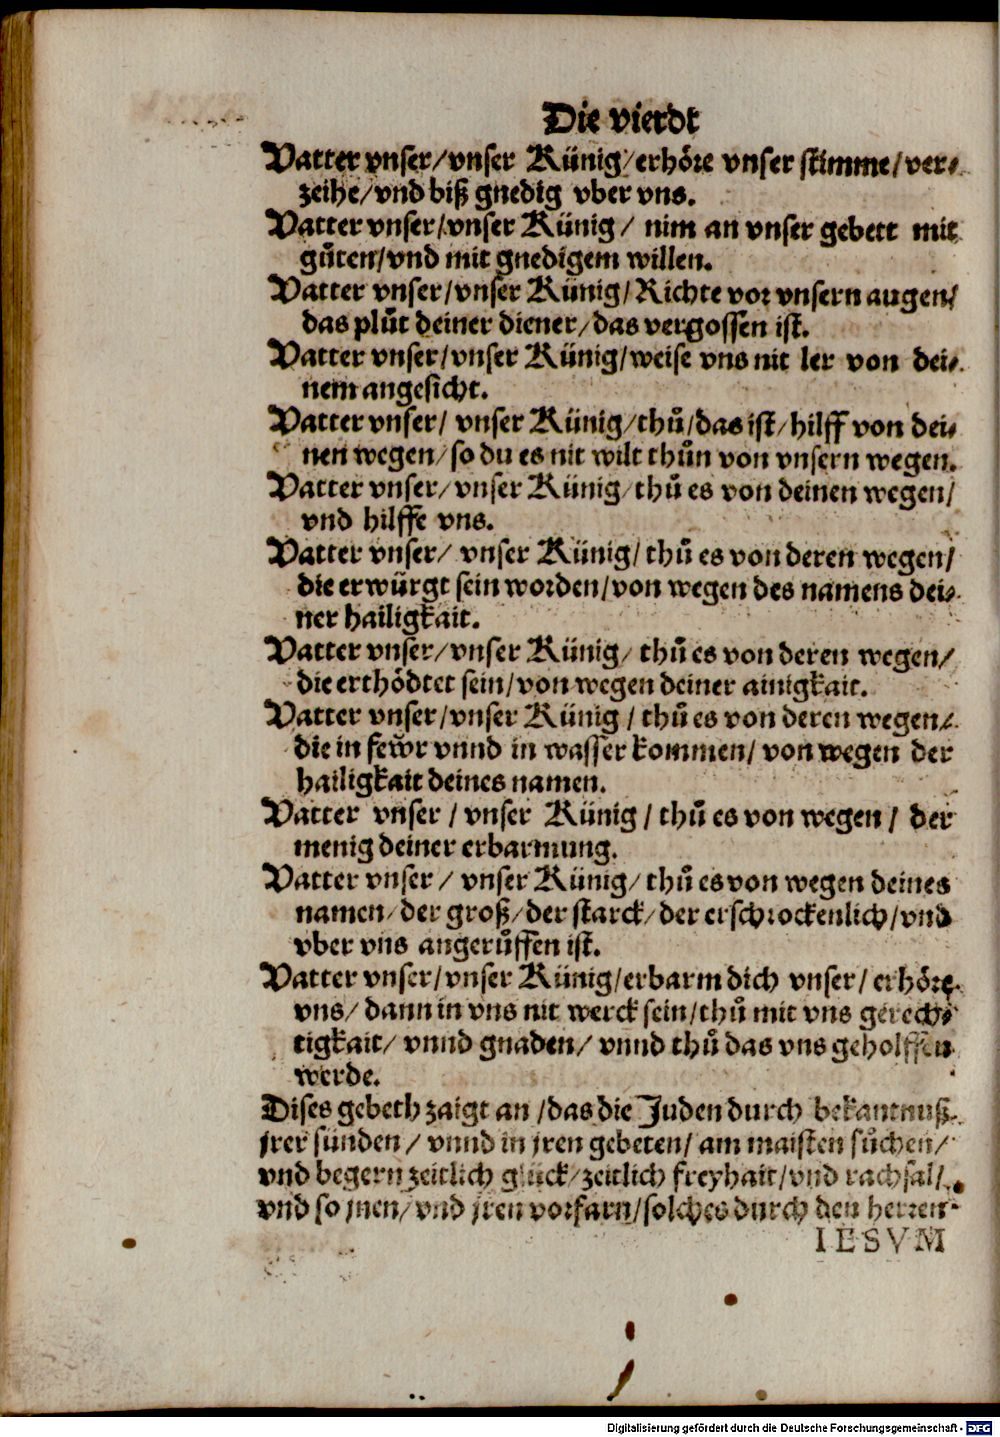 Die vierdt
Vatter vnser/vnser Künig/erhöre vnser stimme/ver⸗
zeihe/vnd biß gnedig vber vns.
Vatter vnser/vnser Künig/ nim an vnser gebett mit
guͤten/vnd mit gnedigem willen.
Vatter vnser/vnser Künig/Richte vor vnsern augen/
das pluͦt deiner diener/das vergossen ist.
Vatter vnser/vnser Künig/weise vns nit ler von dei⸗
nem angesicht.
Vatter vnser/ vnser Künig/thuͦ/das ist/hilff von dei⸗
nen wegen/so du es nit wilt thuͦn von vnsern wegen.
Vatter vnser/vnser Künig/thuͦ es von deinen wegen/
vnd hilffe vns.
Vatter vnser/ vnser Künig/thuͦ es von deren wegen/
die erwürgt sein worden/von wegen des namens dei⸗
ner hailigkait.
Vatter vnser/vnser Künig/ thuͦ es von deren wegen/
die erthödtet sein/von wegen deiner ainigkait.
Vatter vnser/vnser Künig / thuͦ es von deren wegen/
die in fewr vnnd in wasser kommen/ von wegen der
hailigkait deines namen.
Vatter vnser / vnser Künig / thuͦ es von wegen / der
menig deiner erbarmung.
Vatter vnser/ vnser Künig/ thuͦ es von wegen deines
namen/der groß/der starck/der erschrockenlich/vnd
vber vns angeruͤffen ist.
Vatter vnser/vnser Künig/erbarm dich vnser/ erhöre
vns/ dann in vns nit werck sein/thuͦ mit vns gerech⸗
tigkait/ vnnd gnaden/ vnnd thuͦ das vns geholffen
werde.
Dises gebeth zaigt an /das die Juden durch bekantnuß
jrer sünden / vnnd in jren gebeten/ am maisten suͤchen/
vnd begern zeitlich glück/zeitlich freyhait/vnd rachsal/
vnd so jnen/vnd jren vorfarn/solches durch den herren
IESVM
Digitalisierung gefördert durch die Deutsche Forschungsgemeinschaft - DFG